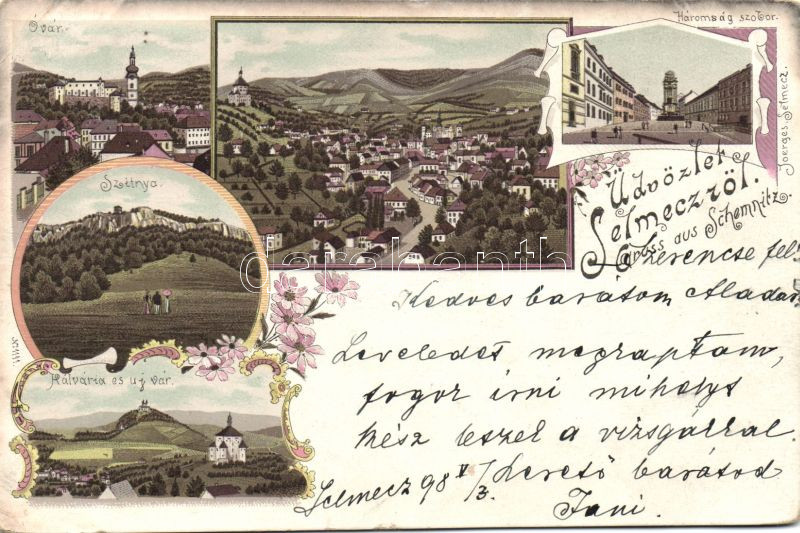 Óvár.
Háromság szobor.
Joerges-Selmecz.
Szitnya.
Üdvözlet
Selmeczről.
Gruss aus Schemnitz.
Kálvária es uj vár.
darabanth
Szerencse fel!
Kedves baratom Aladar
Leveledet megkaptam,
fogok irni mihelyt
kész leszek a vizsgákkal.
Selmecz 98 V/3. Szerető barátod
Jani.